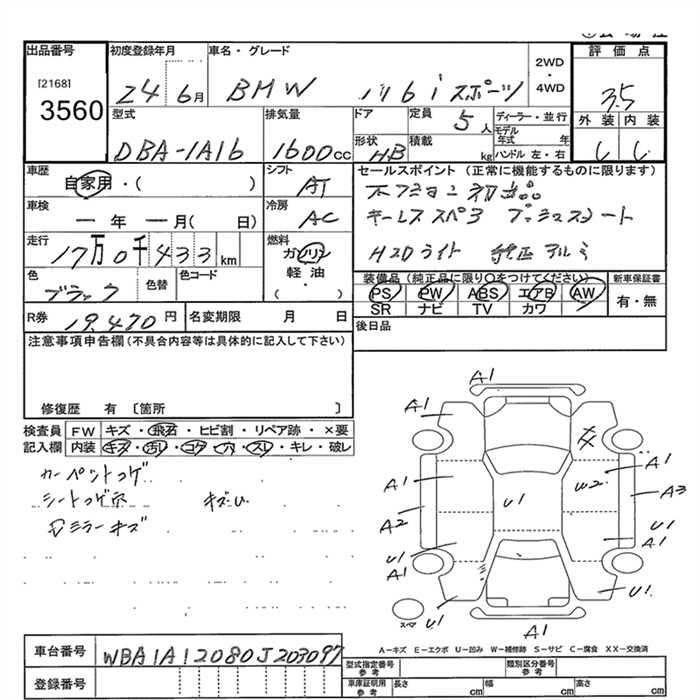 出品番号
[2168]
3560
初度登録年月
24 6月
車名・グレード
BMW 116i スポーツ
2WD
・
4WD
評価点
3.5
外装 内装
型式
DBA-1A16
排気量
1600cc
ドア
形状
HB
定員
5人
積載
kg
ディーラー・並行
モデル
年式 年
ハンドル 左・右
車歴
自家用・( )
シフト
AT
車検
一年一月( 日)
冷房
AC
走行
17万0千433km
燃料
ガソリン
軽油
・
( )
色
ブラック
色替
色コード
R券
19,470円
名変期限 月 日
セールスポイント(正常に機能するものに限ります)
キーレス スペ3 プッシュスタート
HIDライト 純正アルミ
装備品(純正品に限り○をつけてください)
PS PW ABS エアB AW
SR ナビ TV カワ
新車保証書
有・無
後日品
注意事項申告欄(不具合内容等は具体的に記入して下さい)
修復歴 有〔箇所 〕
検査員
記入欄
FW キズ・飛石・ヒビ割・リペア跡・×要
内装 キズ・汚レ・コゲ・穴・スレ・キレ・破レ
カーペットコゲ
シートコゲ穴 キズU
ミラーキズ
A1
A1
A1
A2
U1
A1
U1
U1
U2
A1
A3
U1
A1
U1
A1
スマ
A-キズ E-エクボ U-凹み W-補修跡 S-サビ C-腐食 XX-交換済
車台番号
WBA1A12080J203097
登録番号
型式指定番号
参考
類別区分番号
参考
車庫証明用
参考
長さ cm
幅 cm
高さ cm